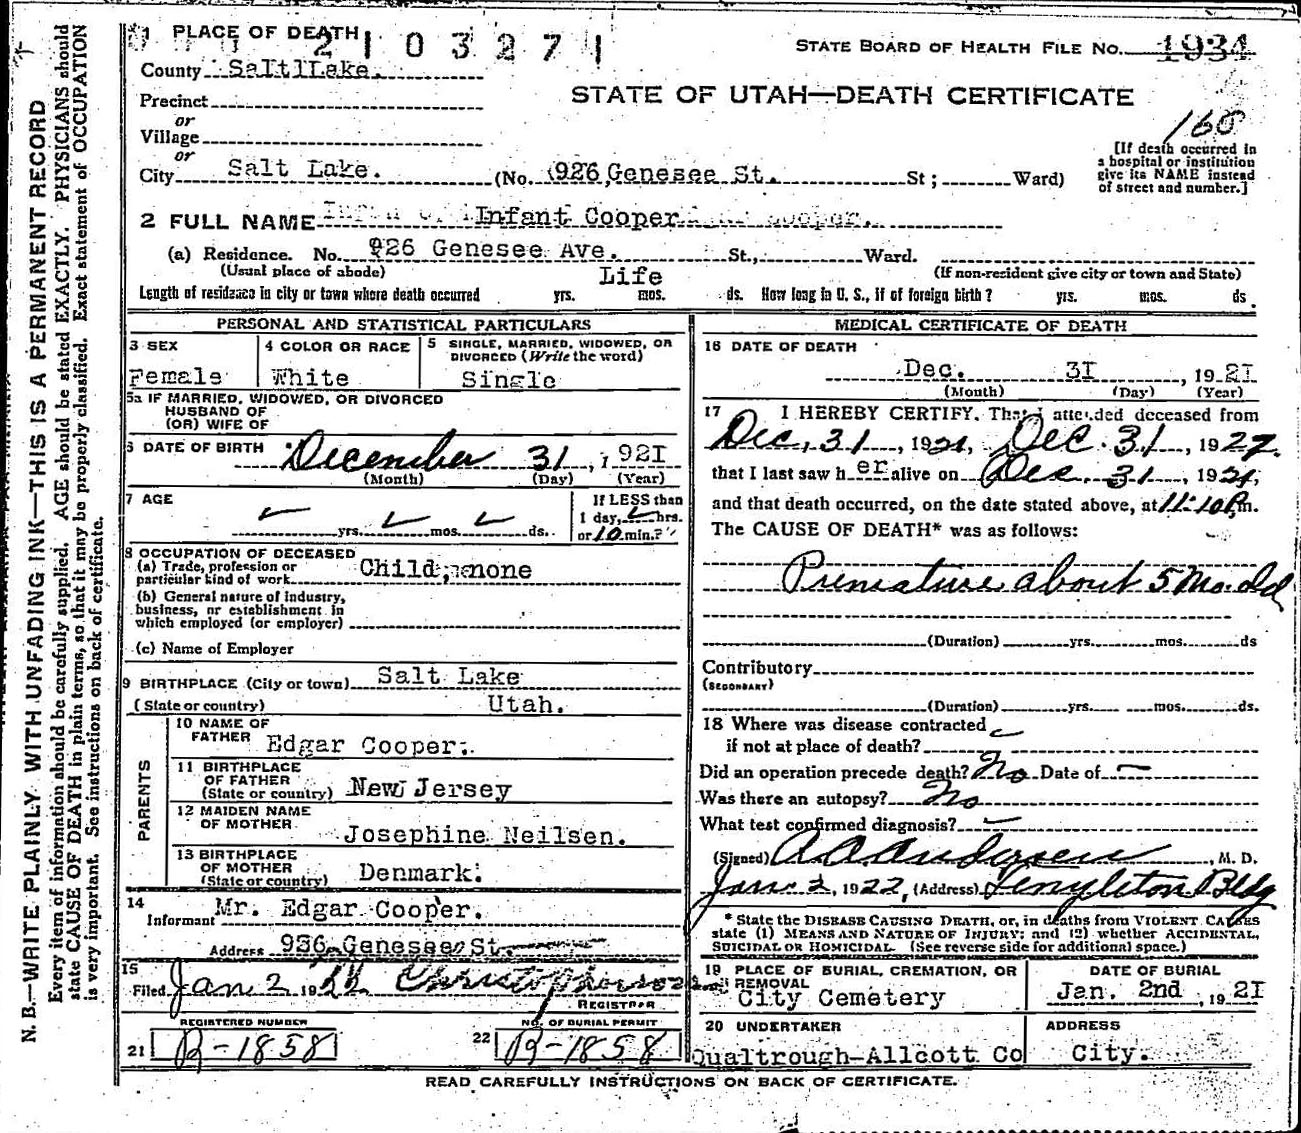 1 PLACE OF DEATH
2103271
STATE BOARD OF HEALTH FILE NO. 1934
County Salt Lake.
STATE OF UTAH—DEATH CERTIFICATE
Precinct
or
Village
or
160
[If death occurred in a hospital or institution give its NAME instead of street and number.]
City Salt Lake. (No. 926 Genesee St. St; Ward)
2 FULL NAME Infant Cooper
(a) Residence. No. 926 Genesee Ave. St., Ward.
(Usual place of abode) (If non-resident give city or town and State)
Life
Length of residence in city or town where death occurred yrs. mos. ds. How long in U. S., if of foreign birth? yrs. mos. ds.
PERSONAL AND STATISTICAL PARTICULARS
3 SEX
Female
4 COLOR OR RACE
White
5 SINGLE, MARRIED, WIDOWED, OR DIVORCED (Write the word)
Single
5a IF MARRIED, WIDOWED, OR DIVORCED
HUSBAND OF
(OR) WIFE OF
6 DATE OF BIRTH December 31, 192I
(Month) (Day) (Year)
7 AGE
yrs. mos. ds.
If LESS than
1 day, hrs.
or 10 min.?
8 OCCUPATION OF DECEASED
(a) Trade, profession or particular kind of work Child, none
(b) General nature of industry,
business, or establishment in
which employed (or employer)
(c) Name of Employer
9 BIRTHPLACE (City or town) Salt Lake
(State or country) Utah.
PARENTS
10 NAME OF FATHER Edgar Cooper.
11 BIRTHPLACE OF FATHER (State or country) New Jersey
12 MAIDEN NAME OF MOTHER Josephine Neilsen.
13 BIRTHPLACE OF MOTHER (State or country) Denmark.
14
Informant Mr. Edgar Cooper.
Address 936 Genesee St.
15
Filed Jan 2 1922
REGISTRAR
REGISTERED NUMBER
21 B-1858
22 NO. OF BURIAL PERMIT
B-1858
MEDICAL CERTIFICATE OF DEATH
16 DATE OF DEATH
Dec. 3I, 192I
(Month) (Day) (Year)
17 I HEREBY CERTIFY, That I attended deceased from
Dec, 31, 1921, Dec. 31, 1927.
that I last saw her alive on Dec. 31, 1921,
and that death occurred, on the date stated above, at 11:10 P.m.
The CAUSE OF DEATH* was as follows:
Premature about 5 Mo. old
(Duration) yrs. mos. ds
Contributory
(SECONDARY)
(Duration) yrs. mos. ds.
18 Where was disease contracted
if not at place of death?
Did an operation precede death? No Date of —
Was there an autopsy? No
What test confirmed diagnosis?
(Signed) A A Andersen, M. D.
Jan. 2, 1922, (Address) Templeton Bldg
* State the DISEASE CAUSING DEATH, or, in deaths from VIOLENT CAUSES
state (1) MEANS AND NATURE OF INJURY; and (2) whether ACCIDENTAL,
SUICIDAL OR HOMICIDAL. (See reverse side for additional space.)
19 PLACE OF BURIAL, CREMATION, OR REMOVAL
City Cemetery
DATE OF BURIAL
Jan. 2nd, 192I
20 UNDERTAKER
Qualtrough-Allcott Co
ADDRESS
City.
READ CAREFULLY INSTRUCTIONS ON BACK OF CERTIFICATE.
N. B.—WRITE PLAINLY WITH UNFADING INK—THIS IS A PERMANENT RECORD
Every item of information should be carefully supplied. AGE should be stated EXACTLY. PHYSICIANS should
state CAUSE OF DEATH in plain terms, so that it may be properly classified. Exact statement of OCCUPATION
is very important. See instructions on back of certificate.